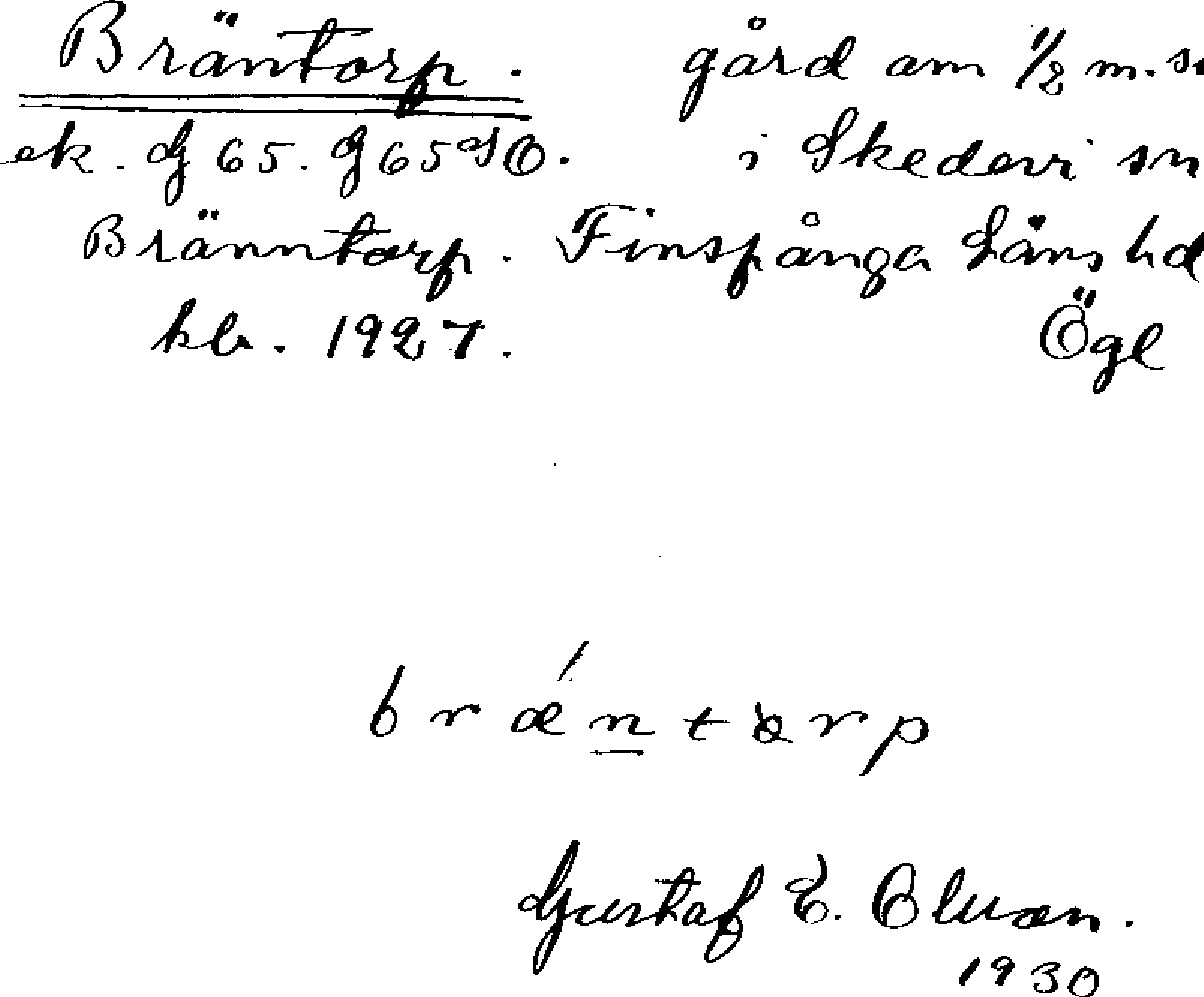 Bräntorp. gård om 1/2 m.
ek. G 65. G 65 SO. i Skedevi sn
Bränntorp. Finspånga Läns hd
kb. 1927. Ögl
bræ´ntorp
Gustaf E. Olsson.
1930